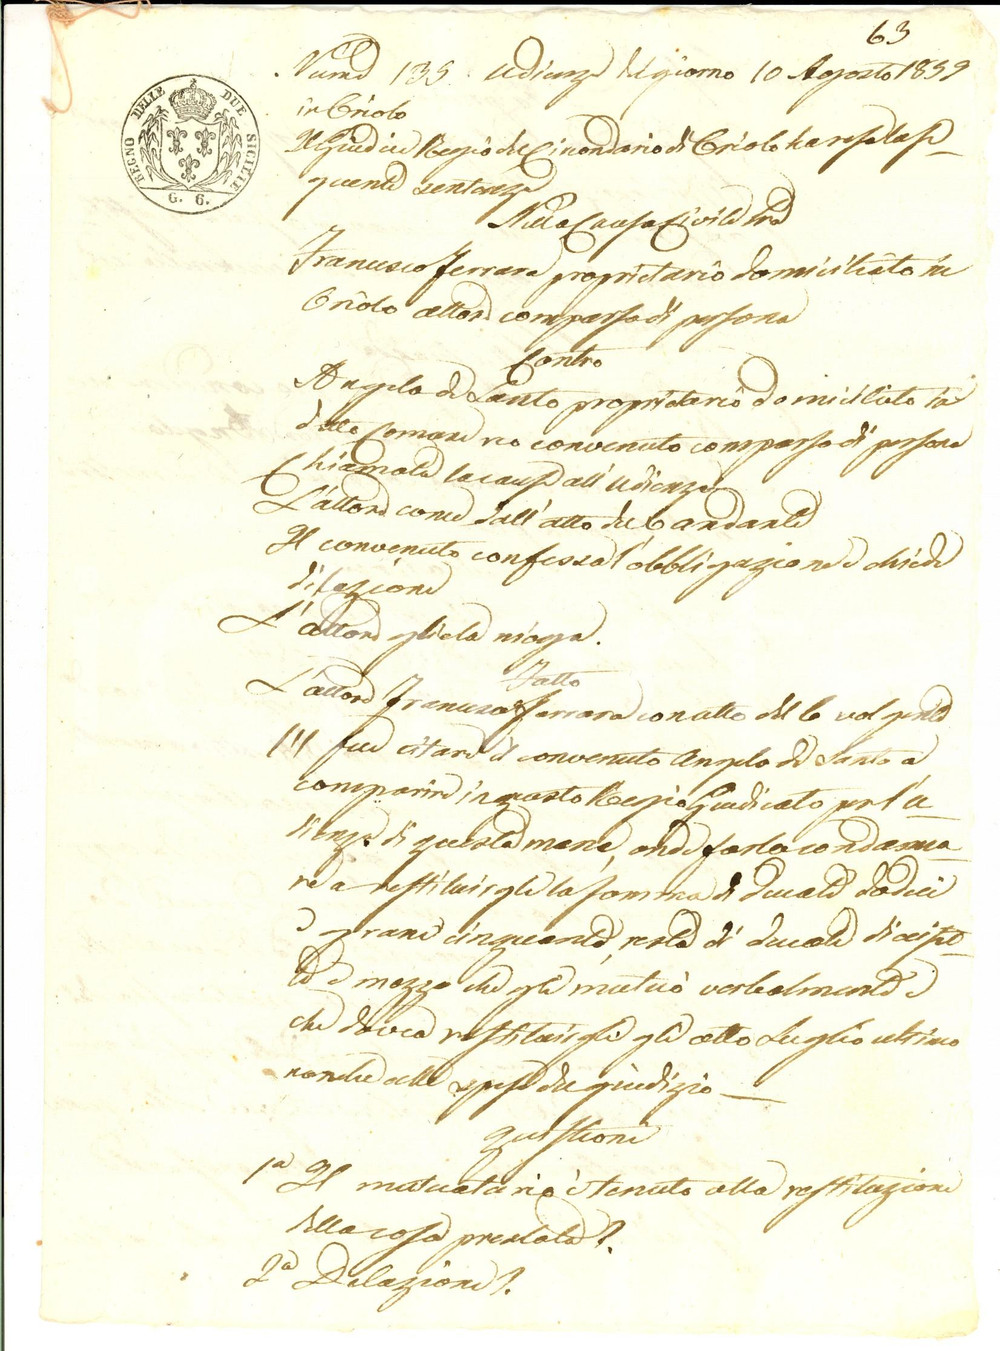 63
REGNO DELLE DUE SICILIE
G. 6.
Num.° 135. Udienza del giorno 10 Agosto 1839
in Oriolo
Il Giudice Regio del Circondario di Oriolo ha reso la se-
guente sentenza
Nella Causa Civile tra
Francesco Ferrara proprietario domiciliato in
Oriolo attore comparso di persona
Contro
Angelo di Santo proprietario domiciliato in
detto Comune reo convenuto comparso di persona
Chiamata la causa all'udienza
L'attore come dall'atto del 6 andante
Il convenuto confessa l'obbligazione e chiede
dilazione
L'attore gliela niega.
Fatto
L'attore Francesco Ferrara con atto del 6 volgente
fece citare il convenuto Angelo di Santo a
comparire in questo Regio Giudicato per l'u-
dienza di questa mane, onde farlo condanna-
re a restituirgli la somma di ducati dodici
e grani cinquanta, resta di ducati diciset-
te e mezzo che gli mutuò verbalmente e
che dovea restituirgli gli otto Luglio ultimo
nonché alle spese del giudizio —
Quistioni
1ª Il mutuatario è tenuto alla restituzione
della cosa prestata?
2ª Dilazione?